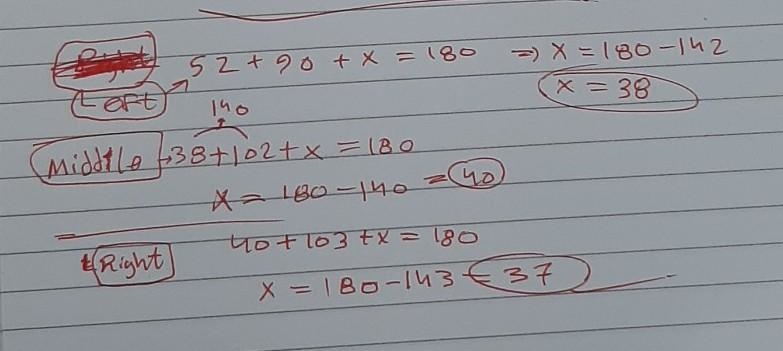 52 + 90 + x = 180 ⇒ x = 180 - 142
Left
x = 38
140
Middle 38 + 102 + x = 180
x = 180 - 140 = 40
40 + 103 + x = 180
Right
x = 180 - 143 = 37